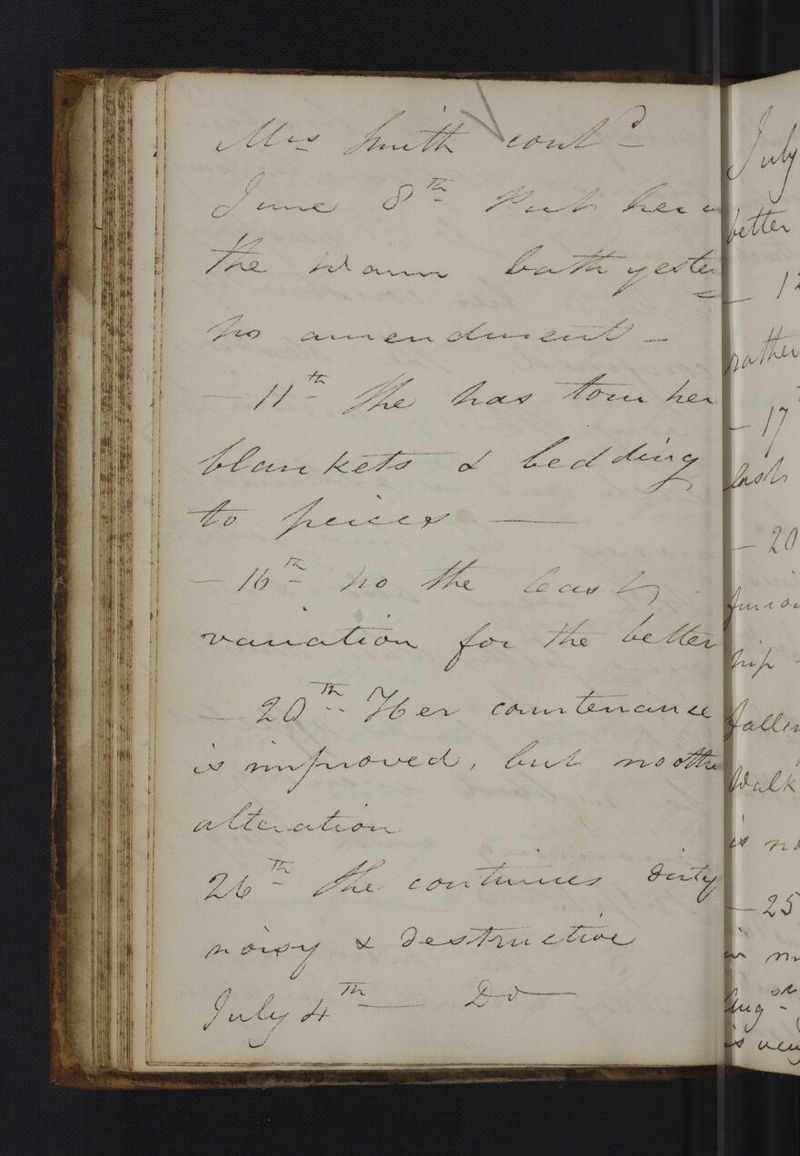 Mrs Smith contd
June 8th Put her in
the warm bath yester
no amendment -
- 11th She has torn her
blankets & bedding
to peices —
- 16th no the least
variation for the better
- 20th Her countenance
is improved, but no othe
alteration
26th She continues dirty
noisy & destructive
July 4th — Do —
July
better
- 12
rather
- 17
last
- 20
furio
hip -
fallen
Walk
is no
- 25
Aug
is